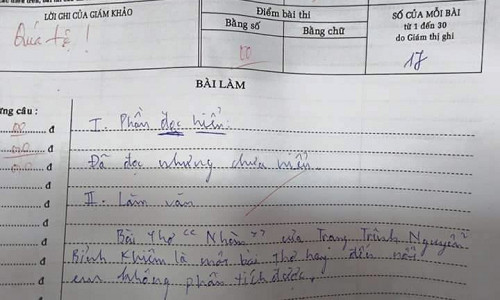 LỜI GHI CỦA GIÁM KHẢO
Điểm bài thi
SỐ CỦA MỖI BÀI
từ 1 đến 30
do Giám thị ghi
Bằng số
Bằng chữ
Quá tệ !
00
17
BÀI LÀM
ừng câu :
00 đ
I. Phần đọc hiểu:
đ
đ
Đã đọc nhưng chưa hiểu
đ
II. Làm văn
đ
đ
Bài thơ "Nhàn" của Trạng Trình Nguyễn
đ
Bỉnh Khiêm là một bài thơ hay đến nỗi
đ
em không phân tích được.